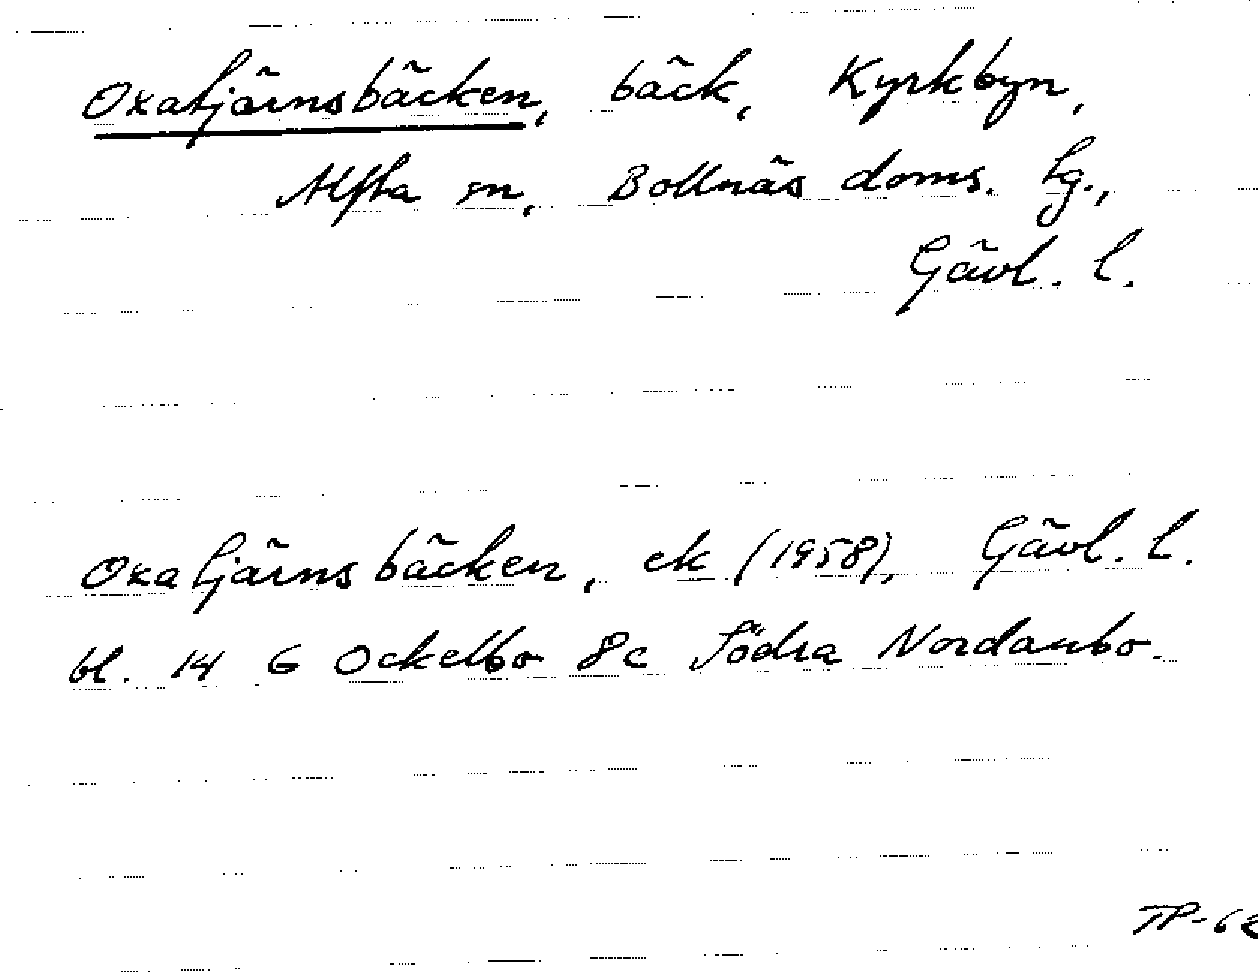 Oxatjärnsbäcken, bäck, Kyrkbyn,
Alfta sn, Bollnäs doms. tg.,
Gävl. l.
Oxatjärnsbäcken, ek (1958), Gävl. l.
bl. 14 G Ockelbo 8c Södra Nordanbo.